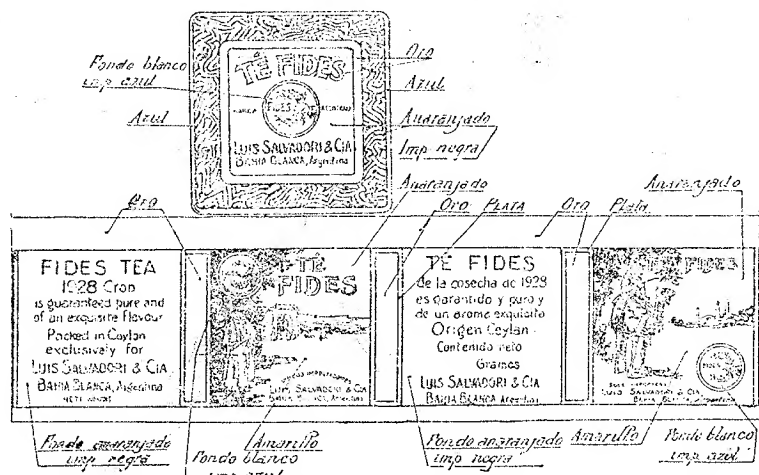 Oro
Fondo blanco
imp azul
Azul
Azul
TÉ FIDES
MARCA
FIDES
Anaranjado
Imp negra
LUIS SALVADORI & CIA
BAHIA BLANCA, Argentina
Anaranjado
Oro
Oro
PLATA
Oro
Plata
Anaranjado
FIDES TEA
1928 Crop
is guaranteed pure and
of an exquisite flavour
Packed in Ceylon
exclusively for
LUIS SALVADORI & CIA
BAHIA BLANCA, Argentina
TÉ
FIDES
LUIS SALVADORI & CIA
BAHIA BLANCA, Argentina
TÉ FIDES
de la cosecha de 1928
es garantido y puro y
de un aroma exquisito
Origen Ceylan
Contenido neto
Gramos
LUIS SALVADORI & CIA
BAHIA BLANCA, Argentina
FIDES
LUIS SALVADORI & CIA
BAHIA BLANCA, Argentina
Fondo anaranjado
imp negra
Fondo blanco
imp azul
Amarillo
Fondo anaranjado
imp negra
Amarillo
Fondo blanco
imp azul